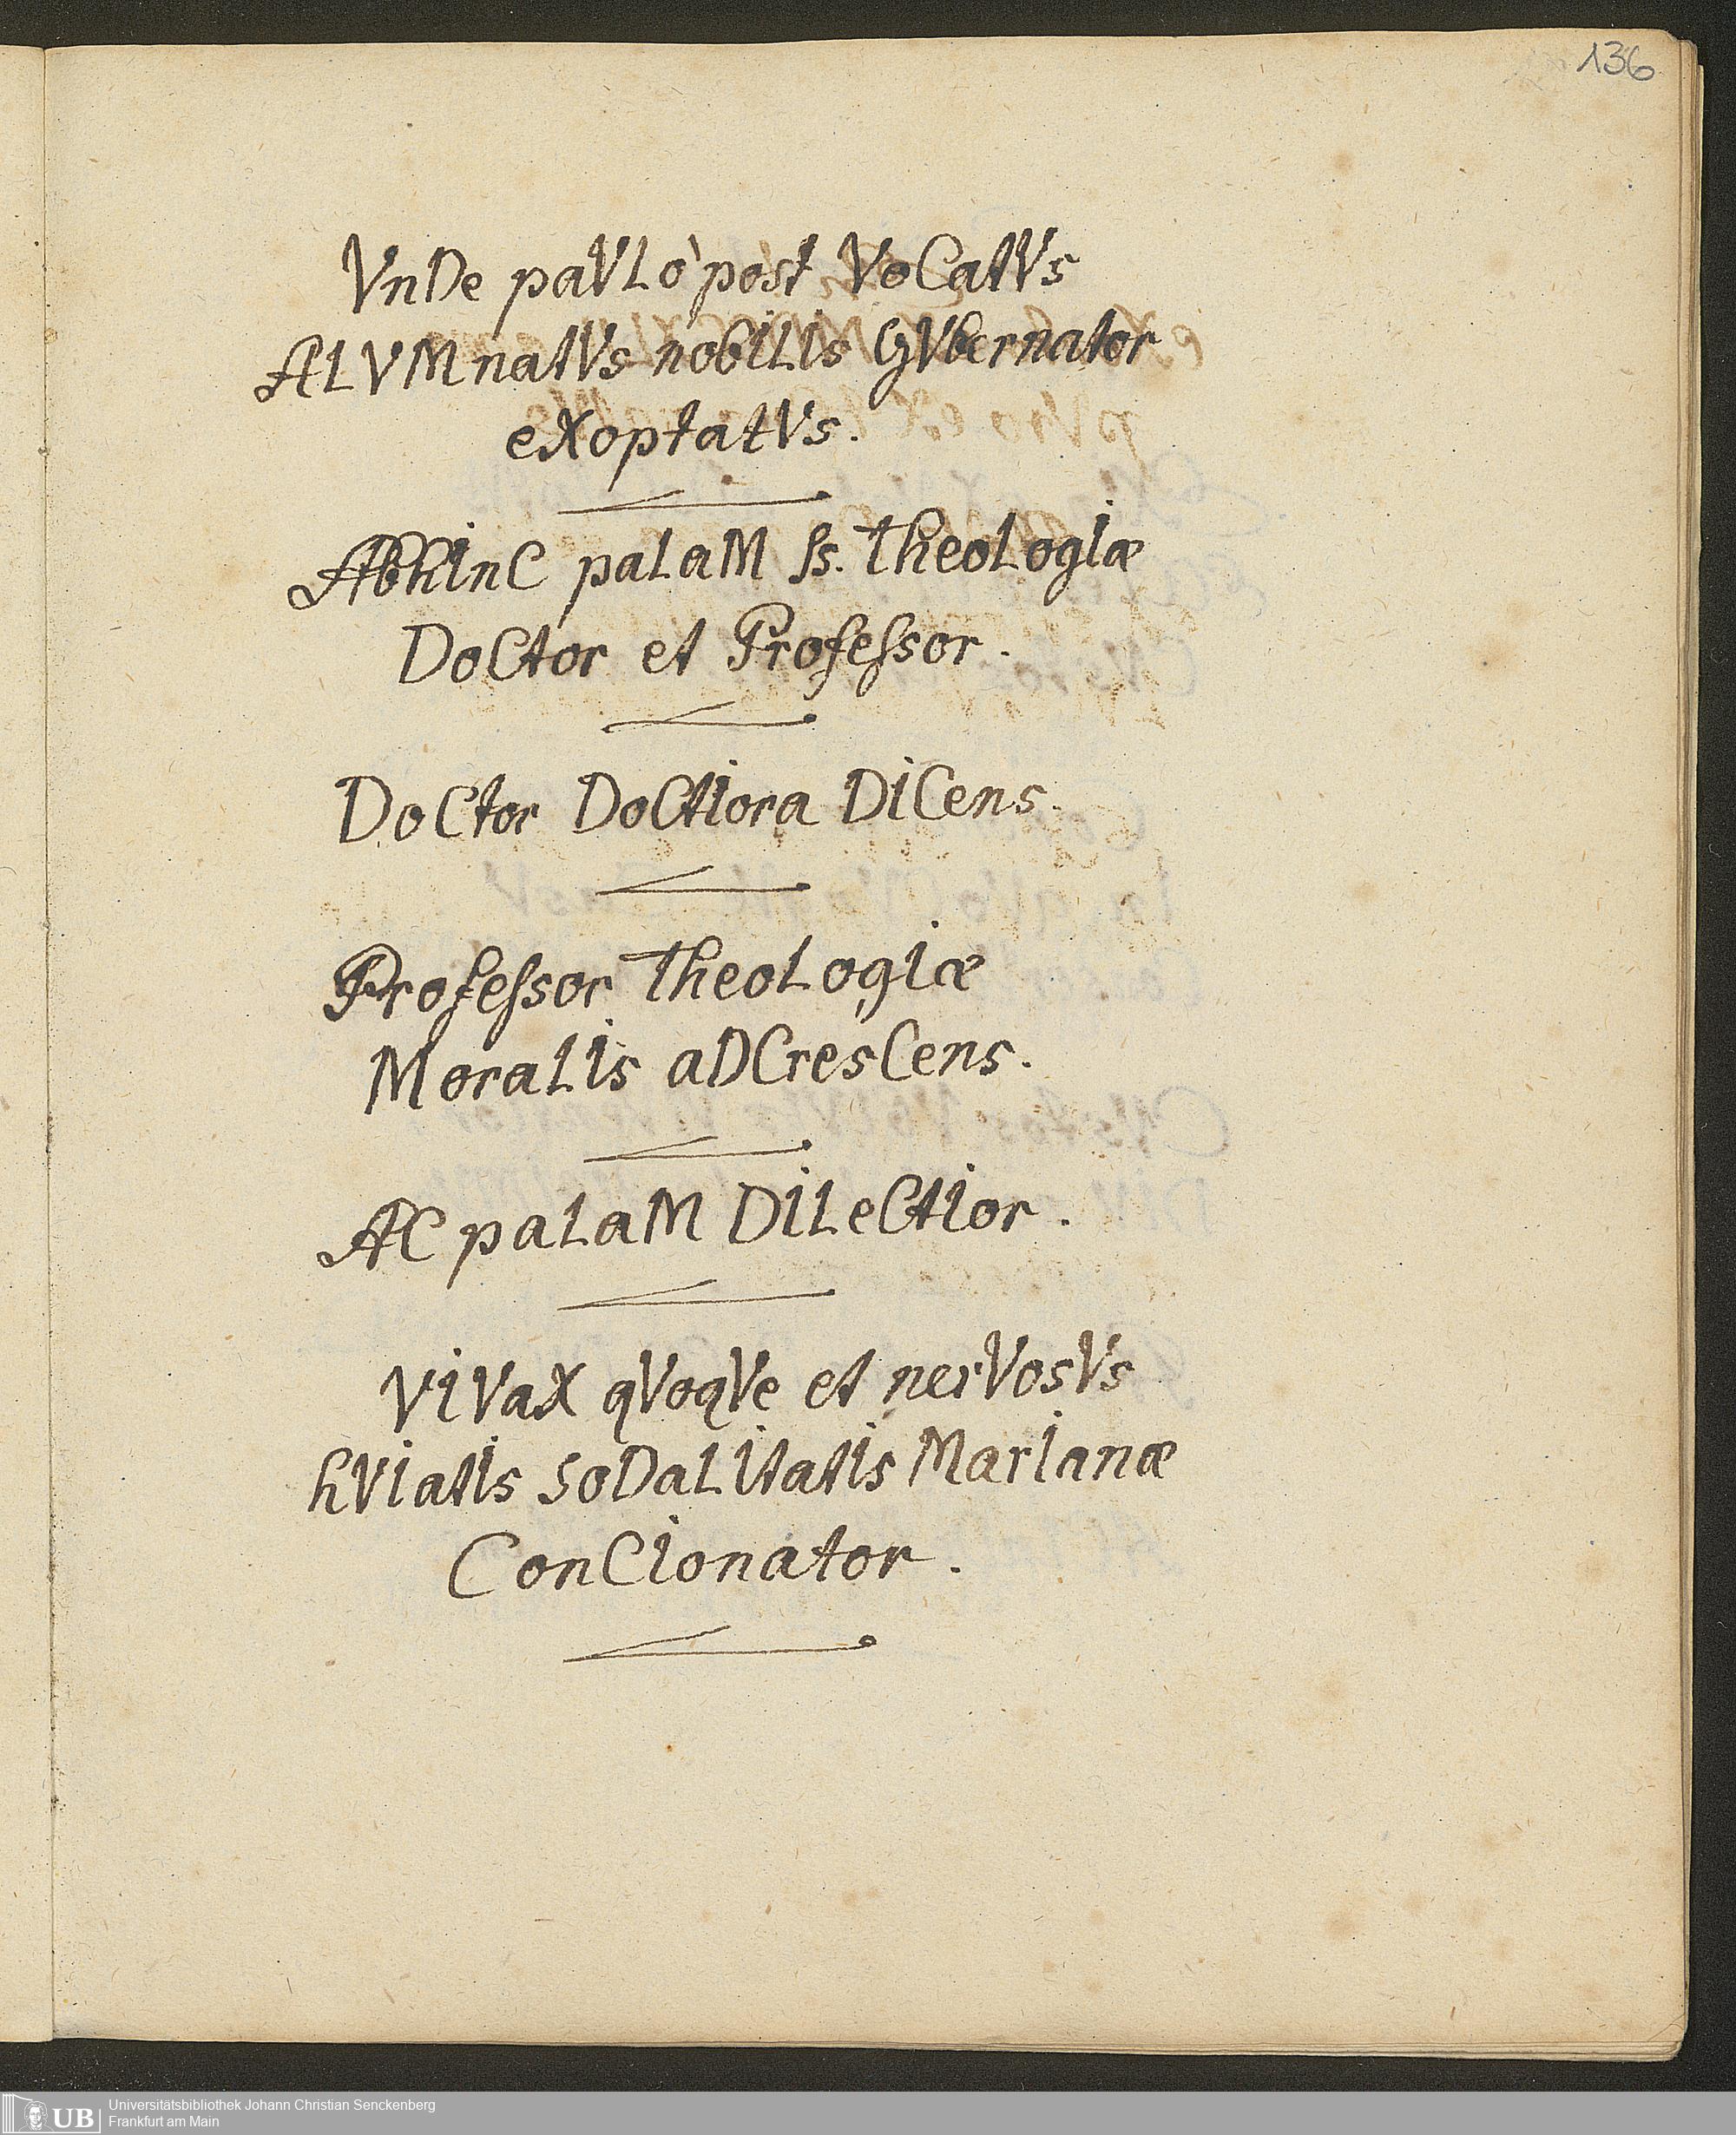 136
VnDe paVLò post VoCatVs
ALVMnatVs nobILIs GVbernator
eXoptatVs.
AbhInC paLaM ſs. theoLogIæ
DoCtor et Profeſsor.
DoCtor DoCtIora DICens.
Profeſsor theoLogIæ
MoraLIs aDCresCens.
AC paLaM DILeCtIor.
VIVaX qVoqVe et nerVosVs
hVIatIs soDaLItatIs MarIanæ
ConCIonator.
UB
Universitätsbibliothek Johann Christian Senckenberg
Frankfurt am Main